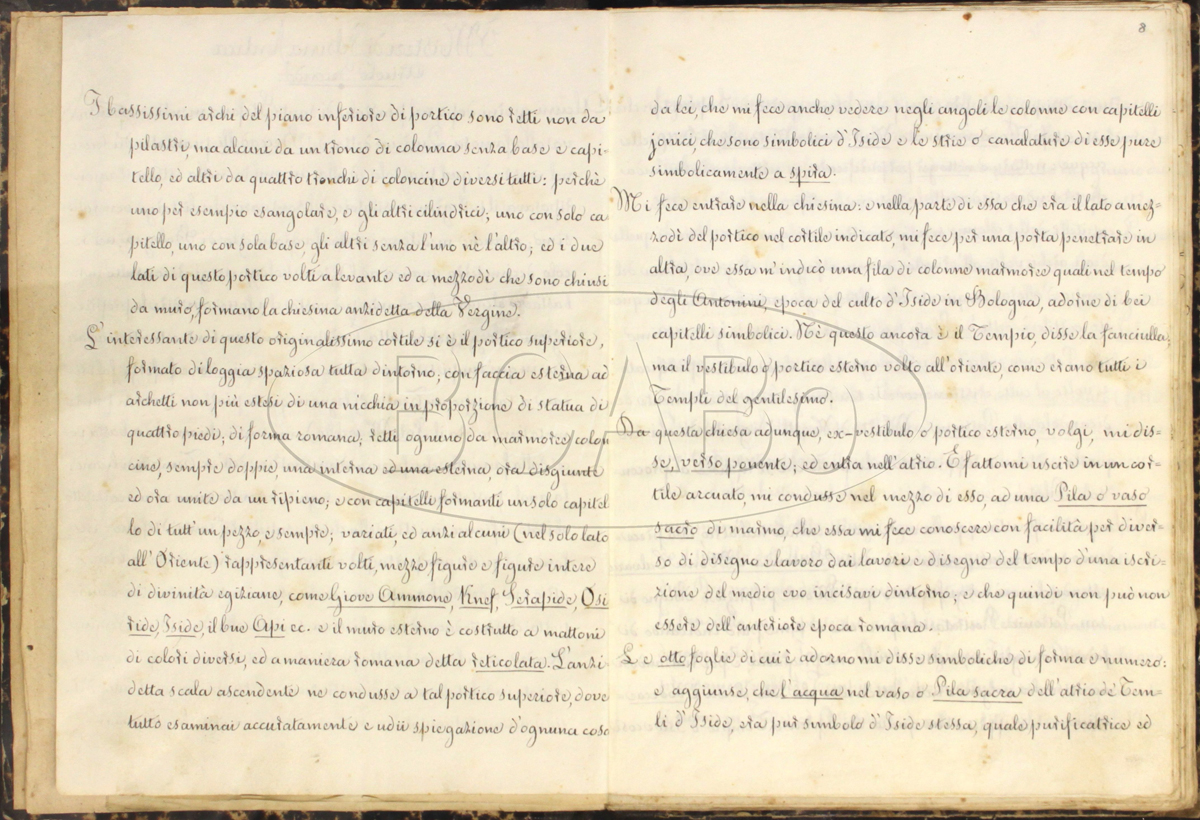 I bassissimi archi del piano inferiore di portico sono retti non da
pilastri, ma alcuni da un tronco di colonna senza base e capi-
tello, ed altri da quattro tronchi di coloncine diversi tutti: perchè
uno per esempio esangolare, e gli altri cilindrici; uno con solo ca
pitello, uno con sola base, gli altri senza l'uno nè l'altro; ed i due
lati di questo portico volti a levante ed a mezzodì che sono chiusi
da muro, formano la chiesina anzidetta della Vergine.
L'interessante di questo originalissimo cortile si è il portico superiore,
formato di loggia spaziosa tutta d'intorno; con faccia esterna ad
archetti non più estesi di una nicchia in proporzione di statua di
quattro piedi; di forma romana; retti ognuno da marmoree colon
cine, sempre doppie, una interna ed una esterna, ora disgiunte
ed ora unite da un ripieno; e con capitelli formanti un solo capitel
lo di tutt'un pezzo, e sempre; variati, ed anzi alcuni (nel solo lato
all'Oriente) rappresentanti volti, mezze figure e figure intere
di divinità egiziane, come Giove Ammone, Knef, Serapide, Osi
ride, Iside, il bue Api ec. e il muro esterno è costrutto a mattoni
di colori diversi, ed a maniera romana detta reticolata. L'anzi
detta scala ascendente ne condusse a tal portico superiore, dove
tutto esaminai accuratamente e udii spiegazione d'ognuna cosa
8
da lei, che mi fece anche vedere negli angoli le colonne con capitelli
jonici, che sono simbolici d'Iside e le strie o canalature di esse pure
simbolicamente a spira.
Mi fece entrare nella chiesina: e nella parte di essa che era il lato a mez=
zodì del portico nel cortile indicato, mi fece per una porta penetrare in
altra, ove essa m'indicò una fila di colonne marmoree quali nel tempo
degli Antonini, epoca del culto d'Iside in Bologna, adorne di bei
capitelli simbolici. Nè questo ancora è il Tempio, disse la fanciulla;
ma il vestibulo o portico esterno volto all'oriente, come erano tutti i
Templi del gentilesimo.
Da questa chiesa adunque, ex-vestibulo o portico esterno, volgi, mi dis=
se, verso ponente; ed entra nell'atrio. E fattomi uscire in un cor=
tile arcuato, mi condusse nel mezzo di esso, ad una Pila o vaso
sacro di marmo, che essa mi fece conoscere con facilità per diver=
so di disegno e lavoro dai lavori e disegno del tempo d'una iscri=
zione del medio evo incisavi d'intorno; e che quindi non può non
essere dell'anteriore epoca romana.
Le otto foglie di cui è adorno mi disse simboliche di forma e numero:
e aggiunse, che l'acqua nel vaso o Pila sacra dell'atrio de' Tem=
li d'Iside, era pur simbolo d'Iside stessa, quale purificatrice ed
BOABo